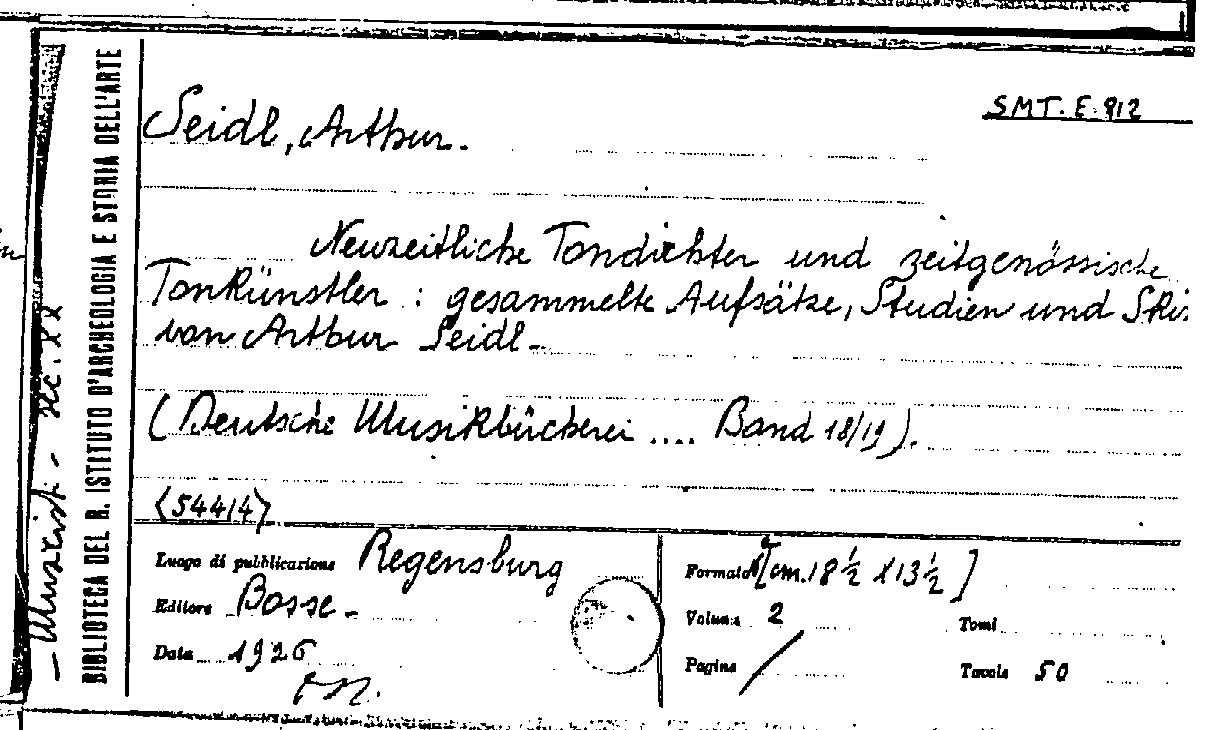 SMT. E. 812
Seidl, Arthur.
Neuzeitliche Tondichter und zeitgenössische
Tonkünstler : gesammelte Aufsätze, Studien und Ski
von Arthur Seidl -
(Deutsche Musikbücherei .... Band 18/19).
(54414)
Luogo di pubblicazione Regensburg
Editore Bosse -
Data 1926
Formato [cm. 18 ½ x 13 ½ ]
Volume 2
Tomi
Pagine /
Tavole 50
BIBLIOTECA DEL R. ISTITUTO D'ARCHEOLOGIA E STORIA DELL'ARTE
- Musicisti - sec. XX